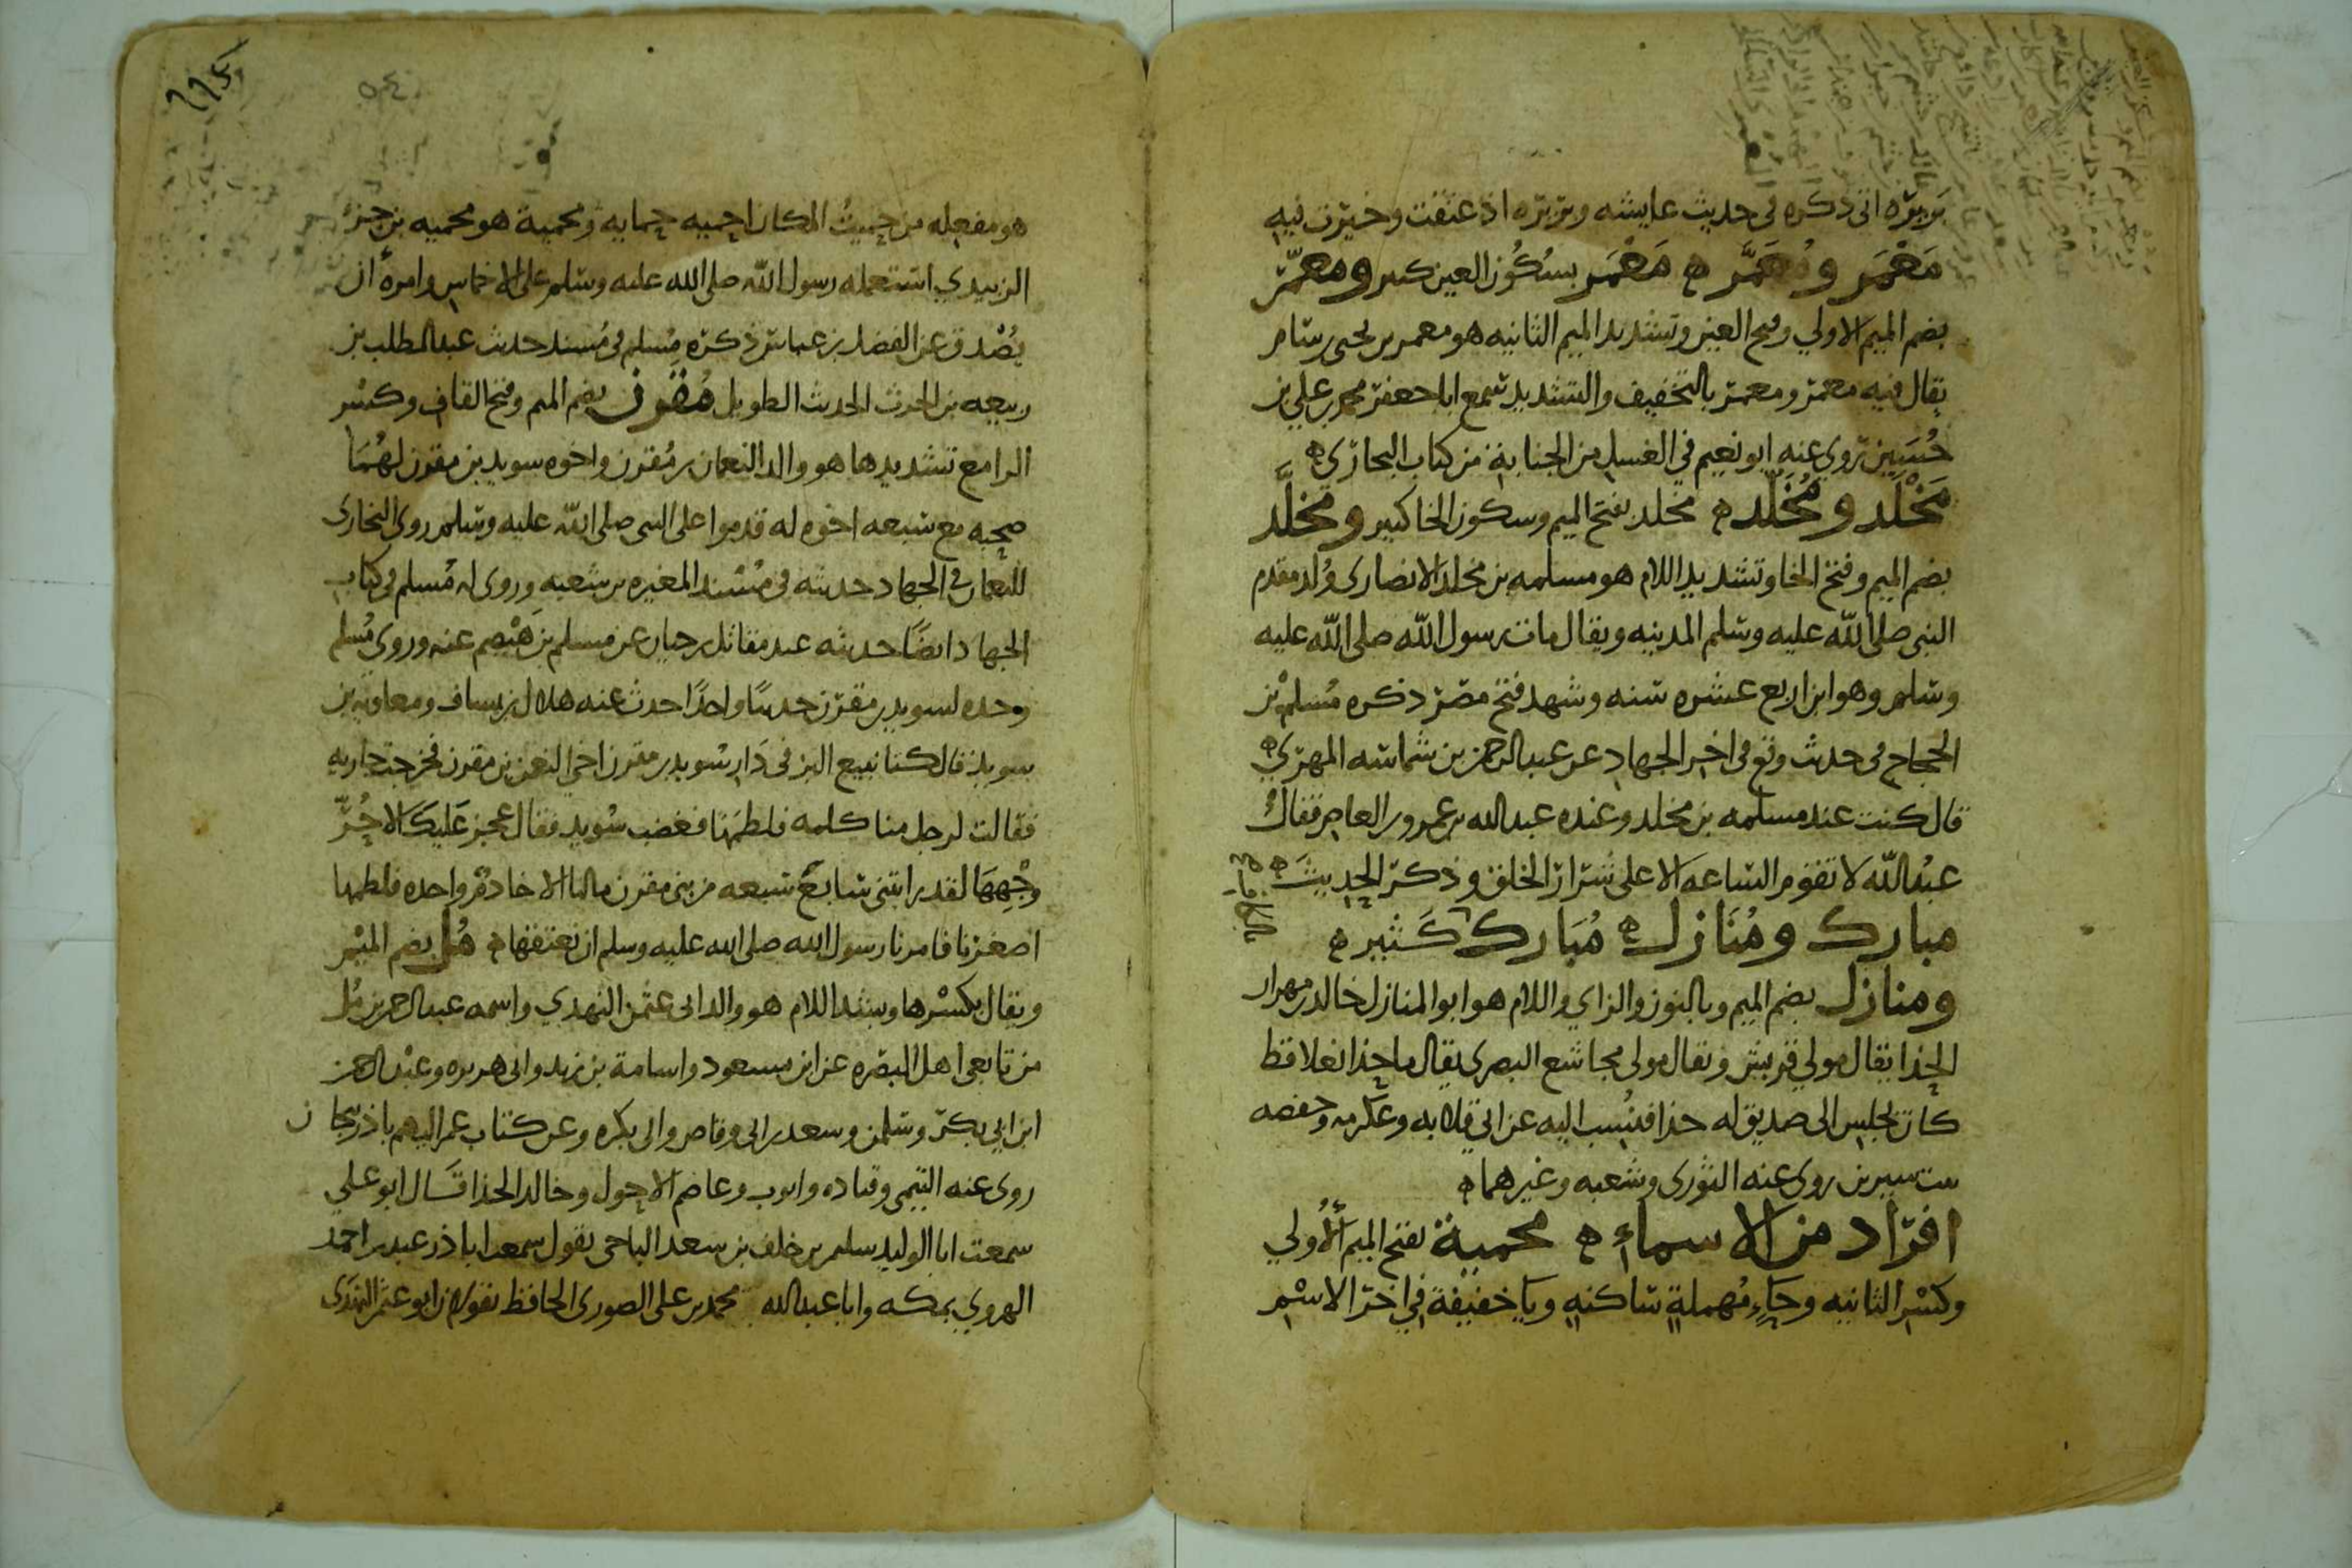 بربره اتى ذكره في حديث عايشه وبريره اذ عتقت وخيرت فيه
مَعْمَر ومُعَمَّر ه مَعْمَر بسُكُون العين كثير ومعمّر
بضم الميم الاولي وفتح العين وتشديد الميم الثانيه هو معمر بن يحيى بن سام
يقال فيه معمر ومعمر بالتخفيف والتشديد سمع ابا جعفر محمد بن علي بن
حُسَين روي عنه ابو نعيم في الغسل من الجنابة من كتاب البخاري ه
مَخْلَد ومُخَلَّد ه مخلد بفتح الميم وسكون الخا كثير ومخلَّد
بضم الميم وفتح الخا وتشديد اللام هو مسلمه بن مخلد الانصاري وُلد مقدم
النبي صلى الله عليه وسلم المدينه ويقال مات رسول الله صلى الله عليه
وسلم وهو ابن اربع عشره سنه وشهد فتح مصر ذكره مُسلم بن
الحجاج في حديث وقع في اخر الجهاد عن عبد الرحمن بن شماسه المهري ه
قال كنت عند مسلمه بن مخلد وعنده عبد الله بن عمرو بن العاص فقال
عبْد الله لا تقوم الساعه الا على شرار الخلق وذكر الحديث ه
مبارك ومُنَازل ه مُبَارك كَثير ه
ومنازل بضم الميم وبالنون والزاي واللام هو ابو المنازل خالد بن مهران
الحذا يقال مولي قريش ويقال مولى مجاشع البصري يقال ما حذا نعلا قط
كان يجلس الى صديق له حذا فنُسب اليه عن ابي قلابه وعكرمه وحفصه
بنت سيرين روى عنه الثوري وشعبه وغيرهما ه
افراد من الاسماء ه محمية بفتح الميم الأُولي
وكسْر الثانيه وحَاءٍ مُهملةٍ ساكنهٍ ويَا خفيفة في اخر الاسْم
هو مفعله من حميتُ المكان احميه حمايه ومحمية هو محميه بن جزء
الزبيدي استعمله رسول الله صلى الله عليه وسلم على الاخماس وامره ان
يُصْدق عن الفضل بن عباس ذكره مُسلم في مُسند حديث عبد المطلب بن
ربيعه بن الحرث الحديث الطويل مُقَرِّن بضم الميم وفتح القاف وكسْر
الرا مع تشديدها هو والد النعمان بن مُقرن واخوه سويد بن مقرن لهُمَا
صحبه مع سبعه اخوه له قدموا على النبي صلى الله عليه وسلم روى البخاري
للنعمان في الجهاد حديثه في مُسْند المغيره بن شعبه وروى له مُسلم في كتاب
الجهاد ايضًا حديثه عند مقاتل بن حيان عن مسلم بن هيْصم عنه وروي مُسلم
وحده لسويد بن مقرن حديثًا واحدًا حدث عنه هلال بن يساف ومعاويه بن
سويد قال كنا نبيع البز في دَار سْويد بن مقرن اخي النعمن بن مقرن فخرجت جاريه
فقالت لرجل منا كلمه فلطمَهَا فغضب سُويد فقال عجز عَليكَ الا حُرُّ
وجْهِهَا لقد رايتني سابعُ سبعه من بني مقرن مالنا الا خادمٌ واحده فلطمها
اصغرنا فامرنا رسول الله صلى الله عليه وسلم ان نعتقها ه مُل بضم الميْم
ويقال بكسْرها وبشد اللام هو والد ابي عثمن النهدي واسمه عبد الرحمن بن مُل
من تابعي اهل البصره عن ابن مسعود واسامة بن زيد وابي هريره وعبْد الرحمن
ابن ابي بكر وسلمن وسعد بن ابي وقاص وابي بكره وعن كتاب عمر اليهم باذربيجان
روى عنه التيمي وقتاده وايوب وعاصم الاحول وخالد الحذا قَال ابو علي
سمعت ابا الوليد سليم بن خلف بن سعد الباجي يقول سمعت ابا ذر عبد بن احمد
الهروي بمكه وابا عبد الله محمد بن علي الصوري الحافظ يقولان ابو عثمن النهدي